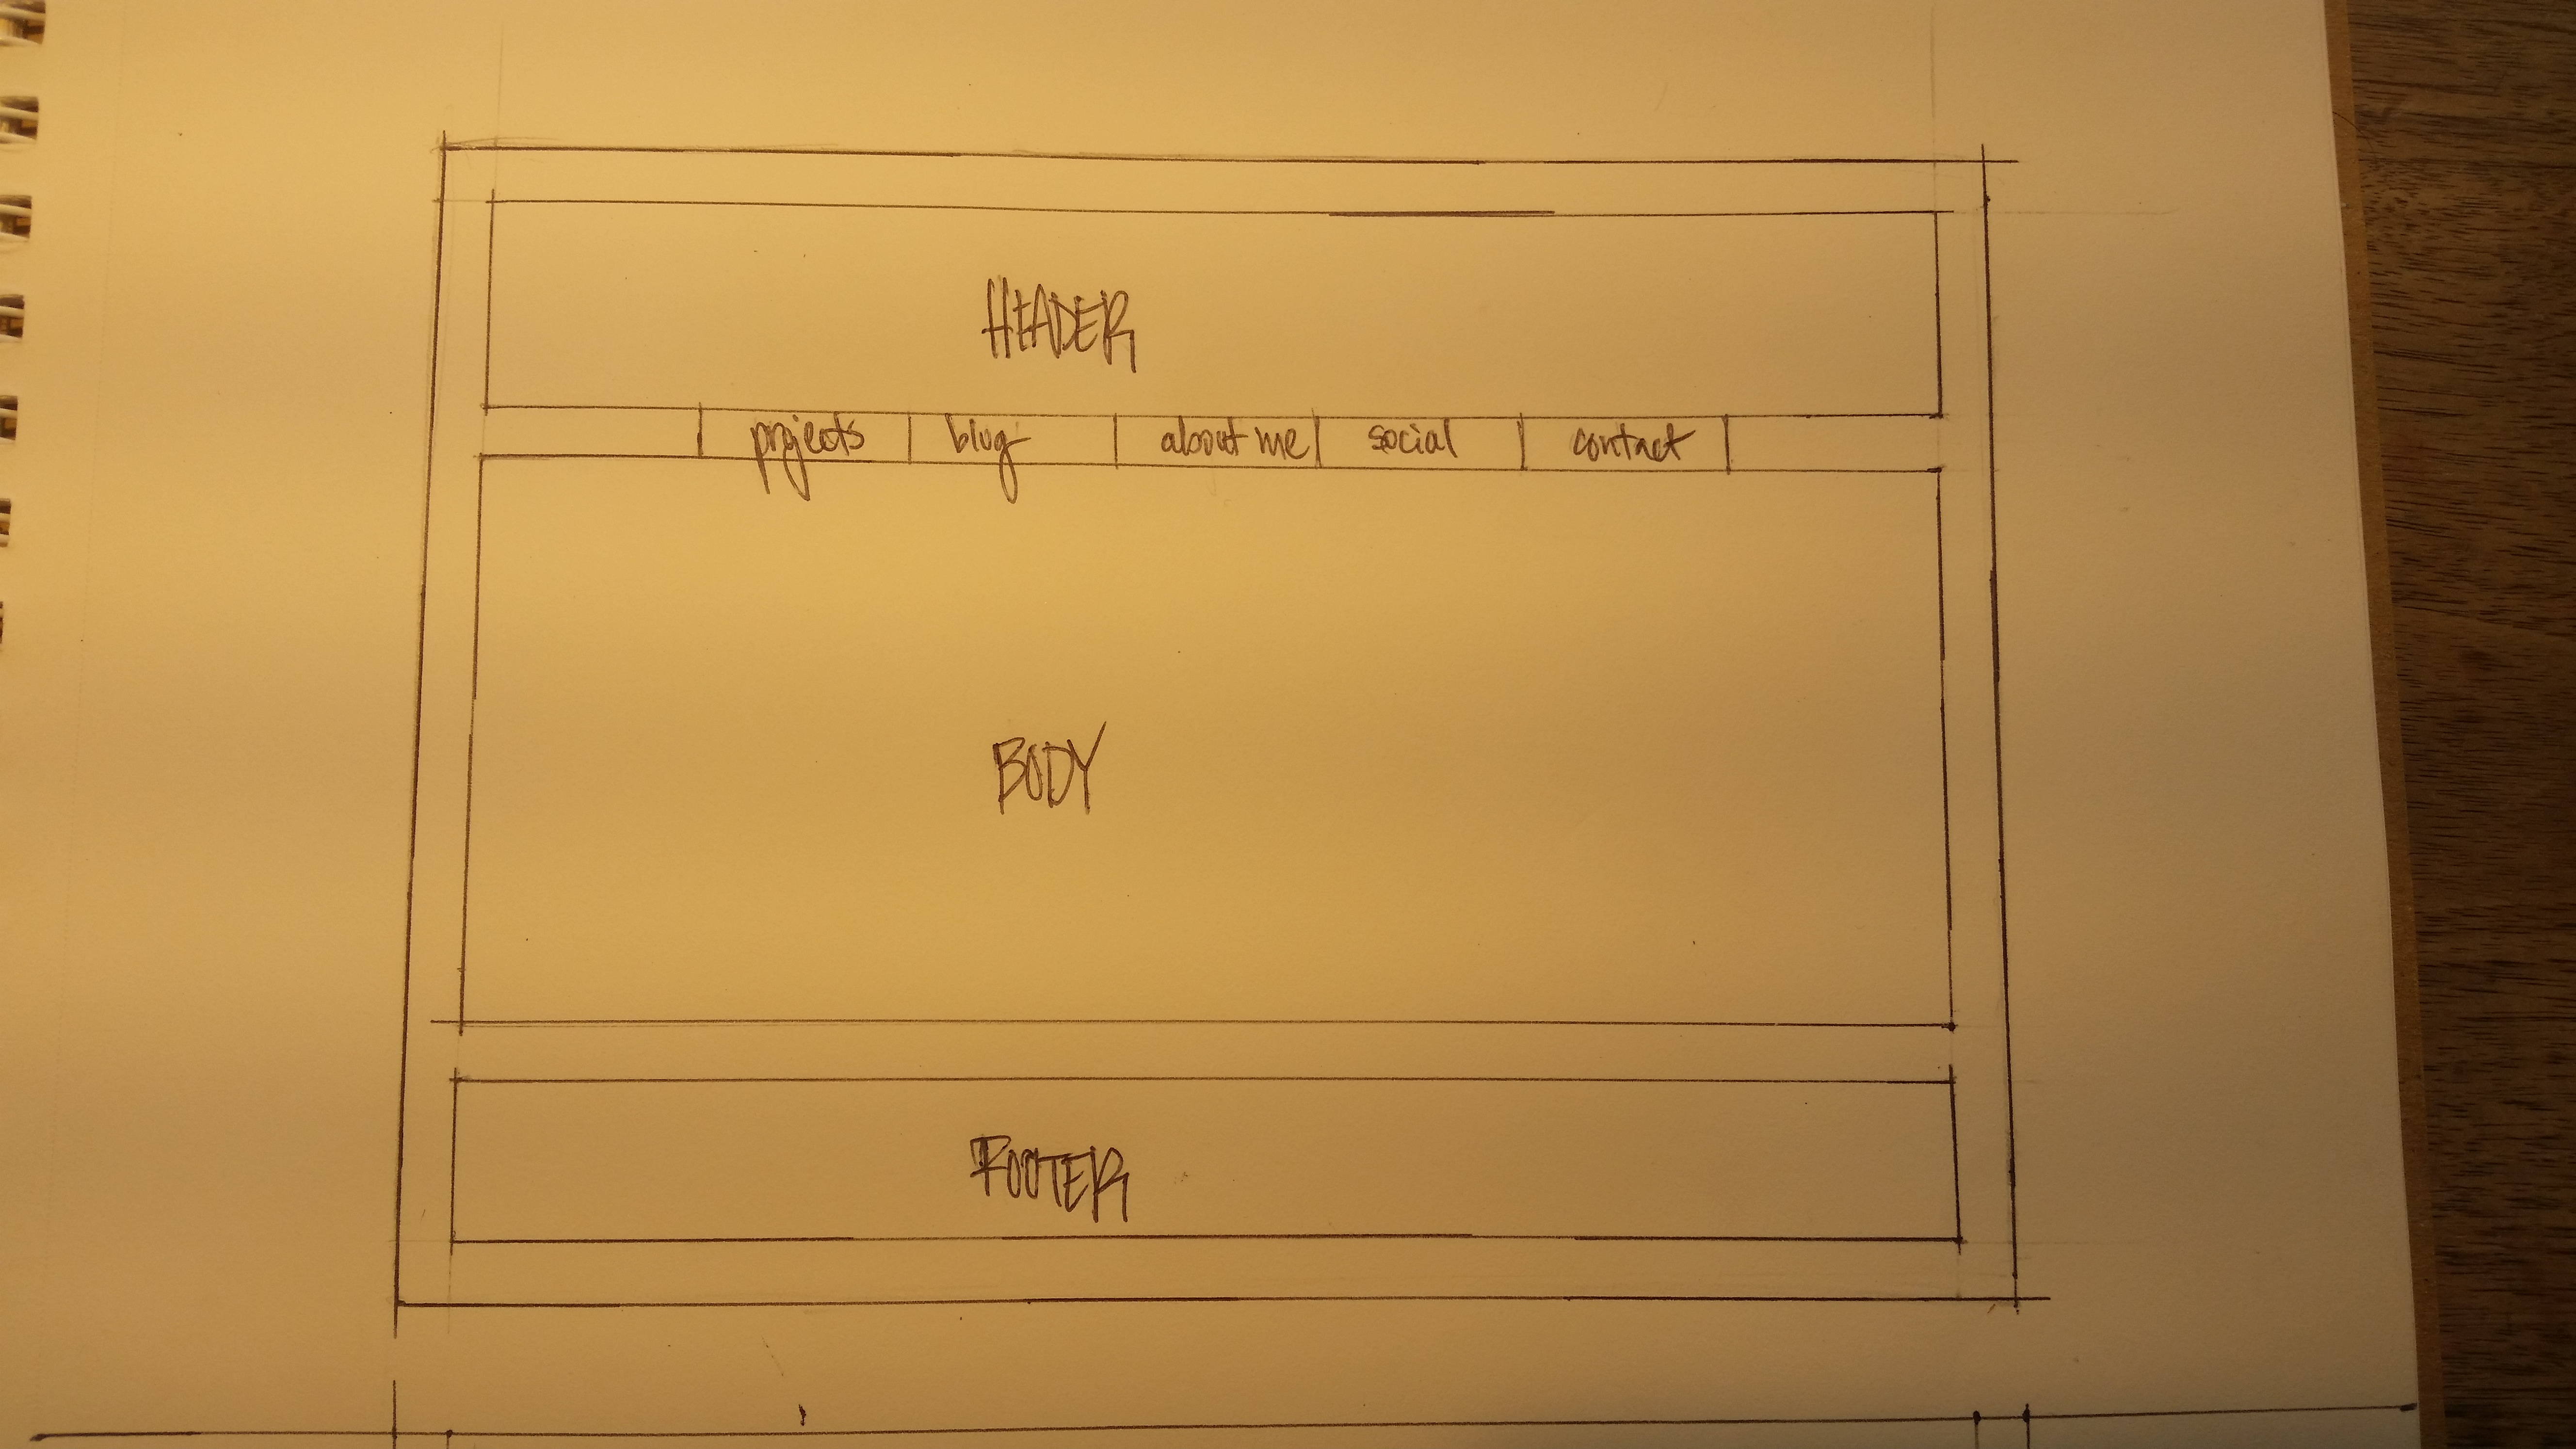 HEADER
projects blog about me social contact
BODY
FOOTER